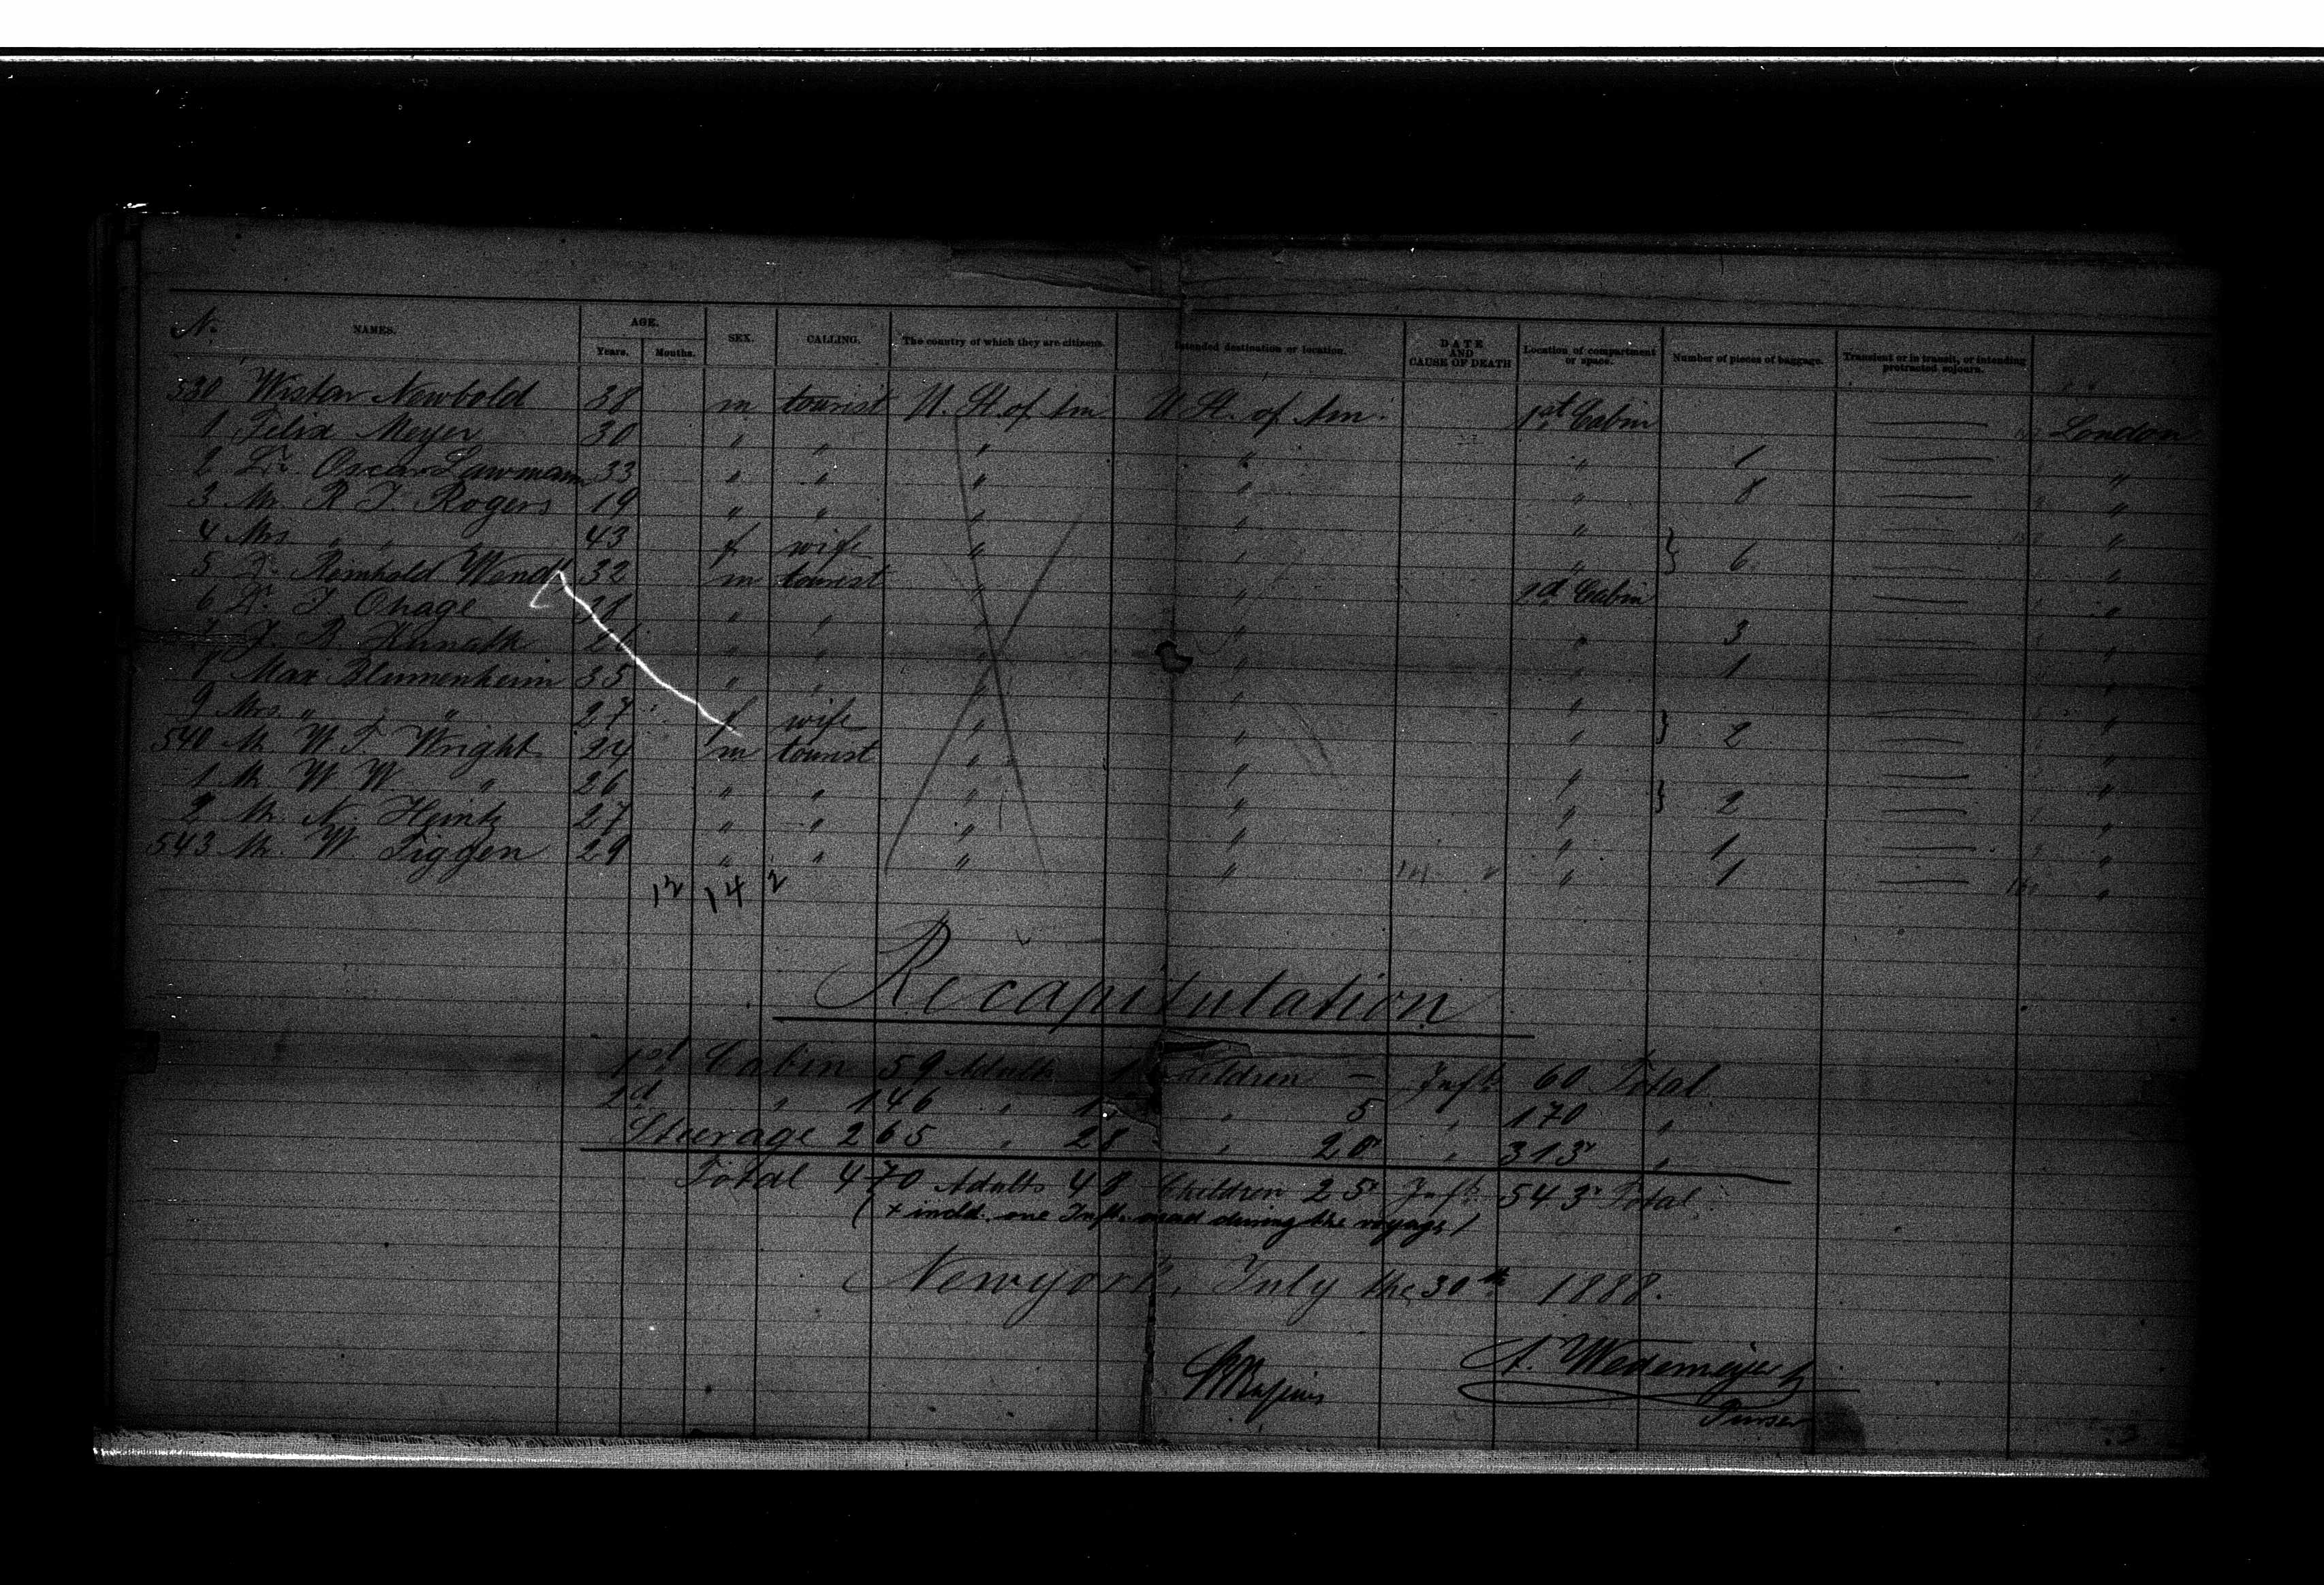 No. NAMES. AGE. Years. Months. SEX. CALLING. The country of which they are citizens. Intended destination or location. DATE AND CAUSE OF DEATH Location of compartment or space. Number of pieces of baggage. Transient or in transit, or intending protracted sojourn.
530 Wistar Newbold 38 m tourist U. St. of Am. U. St. of Am. 1st Cabin — London
1 Felix Meyer 30 " " " " " 1 — "
2 Dr. Oscar Lawmann 33 " " " " " 8 — "
3 Mr. R J. Rogers 19 " " " " " — "
4 Mrs. " " 43 f wife " " " } 6 — "
5 Dr. Reinhold Wend 32 m tourist " " 2d Cabin — "
6 Dr. J Ohage 38 " " " " " 3 — "
7 J. B. 26 " " " " " 1 — "
8 Max Blumenheim 35 " " " " " — "
9 Mrs. " " 27 f wife " " " } 2 — "
540 Mr. W. F. Wright 24 m tourist " " " — "
1 Mr. W W " 26 " " " " " } 2 — "
2 Mr. N. Heintz 27 " " " " " 1 — "
543 Mr. W. Tiggen 29 " " " " " 1 — "
12 14 2
Recapitulation
1st Cabin 59 Adults 1 Children — Infts 60 Total
2d " 146 " " 5 " 170 "
Steerage 265 " 28 " 20+ " 313+ "
Total 470 Adults 48 Children 25+ Infts 543+ Total
(+ incld. one Inft. during the voyage)
Newyork, July the 30th 1888.
A. Wedemeyer
Purser